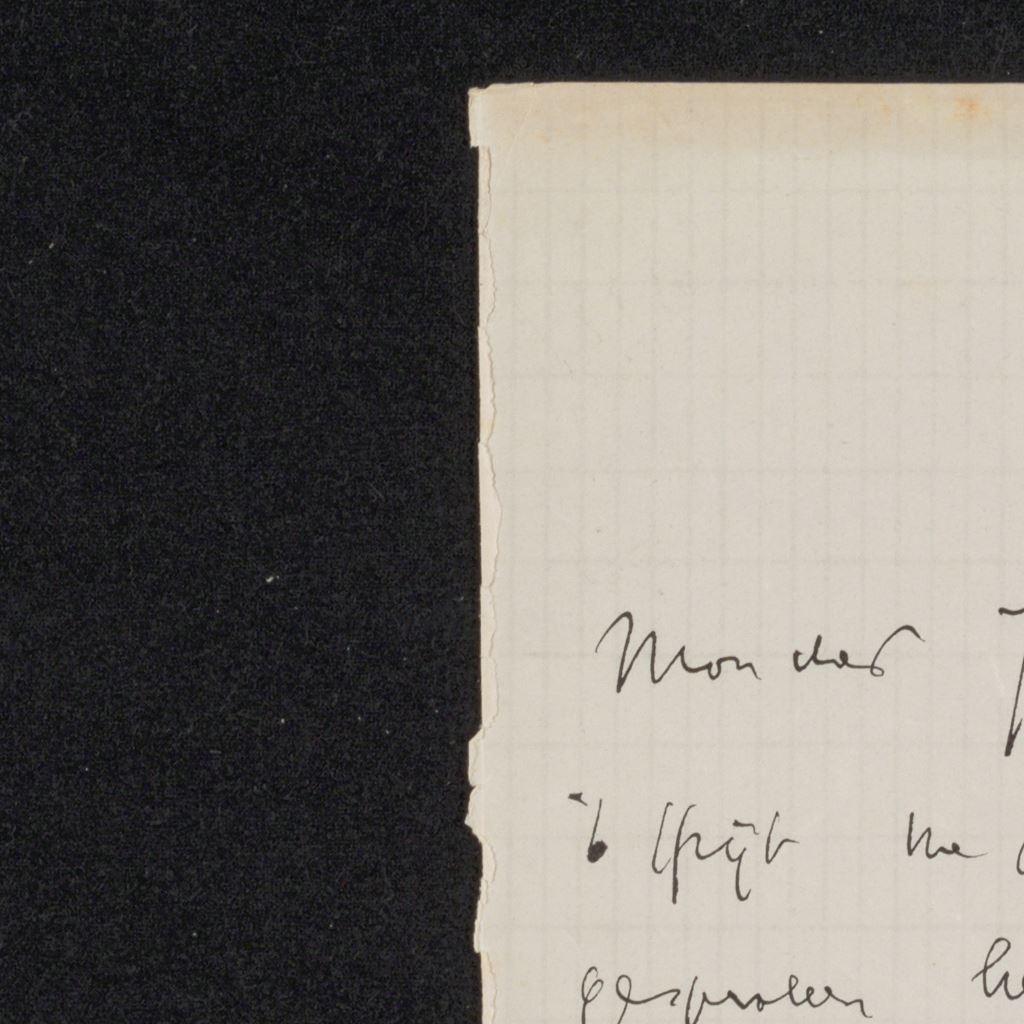 Mon cher
't spijt me
gesproken he